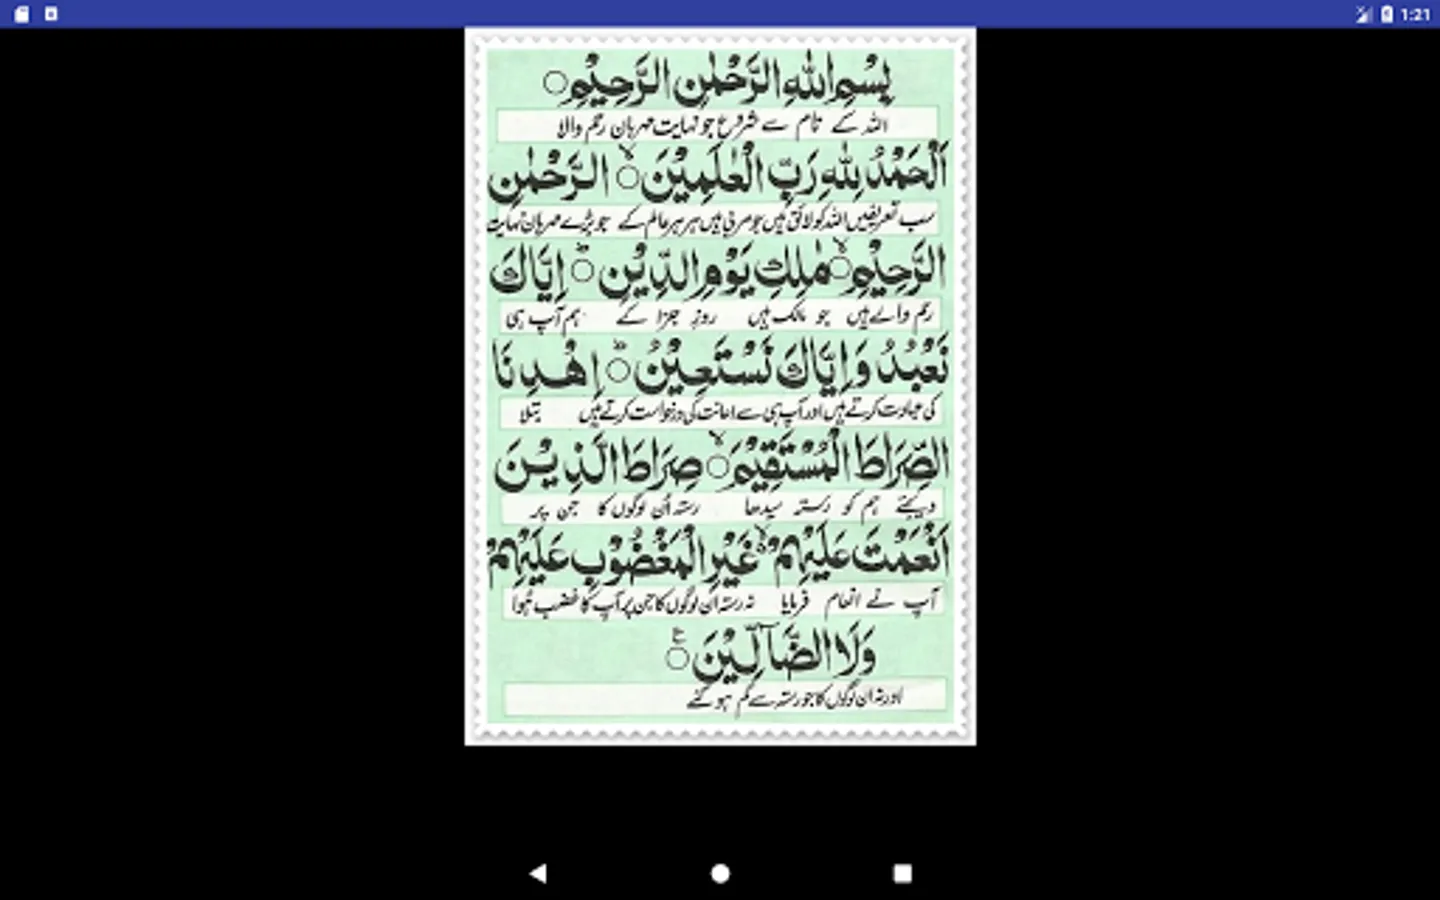 1:21
بِسْمِ اللّٰهِ الرَّحْمٰنِ الرَّحِيْمِ○
اللہ کے نام سے شروع جو نہایت مہربان رحم والا
اَلْحَمْدُ لِلّٰهِ رَبِّ الْعٰلَمِيْنَ○ۙ الرَّحْمٰنِ
سب تعریفیں اللہ کو لائق ہیں جو مربی ہیں ہر ہر عالم کے جو بڑے مہربان نہایت
الرَّحِيْمِ○ۙ مٰلِكِ يَوْمِ الدِّيْنِ○ؕ اِيَّاكَ
رحم والے ہیں جو مالک ہیں روزِ جزا کے ہم آپ ہی
نَعْبُدُ وَاِيَّاكَ نَسْتَعِيْنُ○ؕ اِهْدِنَا
کی عبادت کرتے ہیں اور آپ ہی سے اعانت کی درخواست کرتے ہیں بتلا
الصِّرَاطَ الْمُسْتَقِيْمَ○ۙ صِرَاطَ الَّذِيْنَ
دیجئے ہم کو رستہ سیدھا رستہ اُن لوگوں کا جن پر
اَنْعَمْتَ عَلَيْهِمْ ۙ۬ غَيْرِ الْمَغْضُوْبِ عَلَيْهِمْ
آپ نے انعام فرمایا نہ رستہ ان لوگوں کا جن پر آپ کا غضب ہُوا
وَلَا الضَّآلِّيْنَ○ۧ
اور نہ ان لوگوں کا جو رستہ سے گم ہو گئے